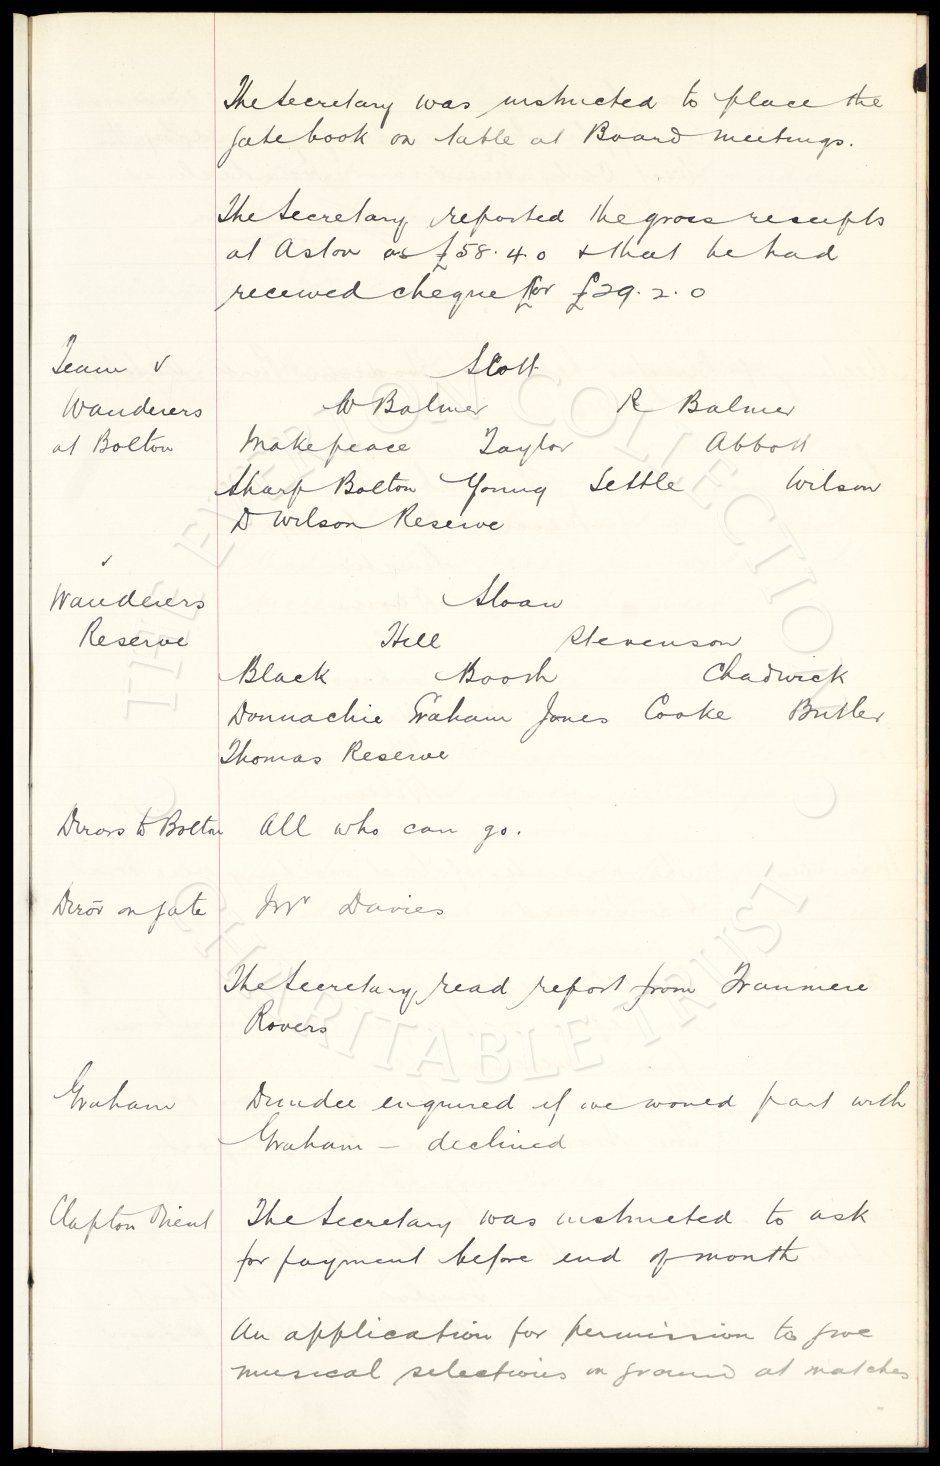 The Secretary was instructed to place the
gate book on table at Board meetings.
The Secretary reported the gross receipts
at Aston as £58. 4. 0 & that he had
received cheque for £29. 2. 0
Team v
Wanderers
at Bolton
Scott
W Balmer R Balmer
Makepeace Taylor Abbott
Sharp Bolton Young Settle Wilson
D Wilson Reserve
v
Wanderers
Reserve
Sloan
Hill Stevenson
Black Booth Chadwick
Donnachie Graham Jones Cooke Butler
Thomas Reserve
Dirors to Bolton All who can go.
Diror on gate Mr Davies
The Secretary read report from Tranmere
Rovers
Graham Dundee enquired if we would part with
Graham — declined
Clapton Orient The Secretary was instructed to ask
for payment before end of month
An application for permission to give
musical selections on ground at matches
THE EVERTON COLLECTION
CHARITABLE TRUST